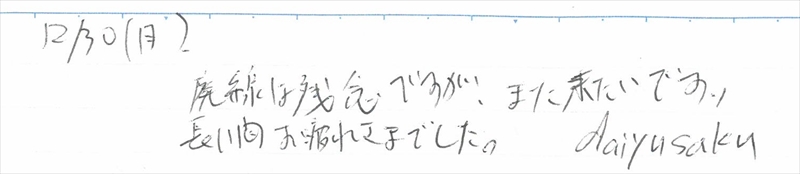 12/30(日)
廃線は残念ですが、また来たいです。
長い間お疲れさまでした。 daiyusaku